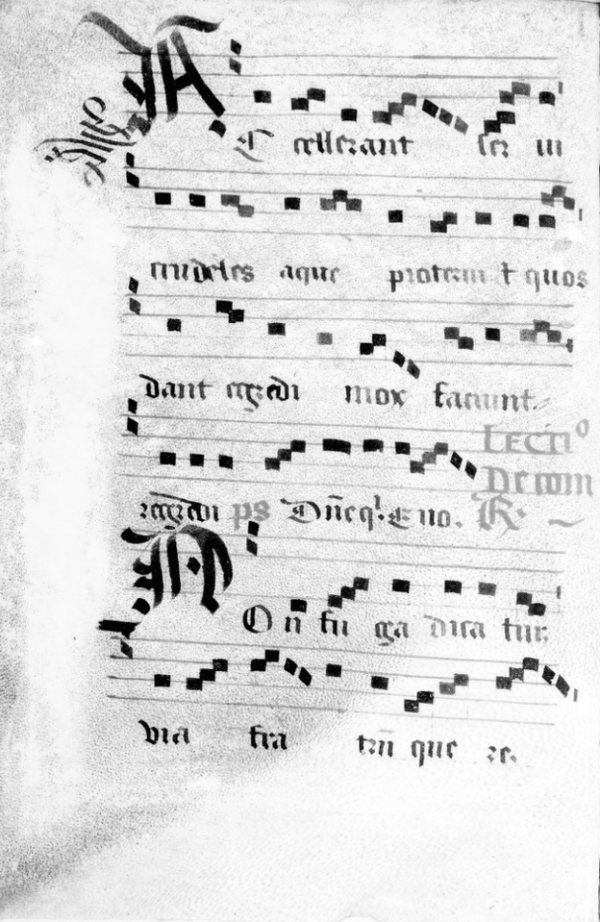 AC cellerant ser ui
crudeles aque protenii t quos
dant egredi mox faciunt.
LECTIO
De com
regredi ps Dñe q. Euo. R.
NOn fu ga dica tur
via fra trũ que re.